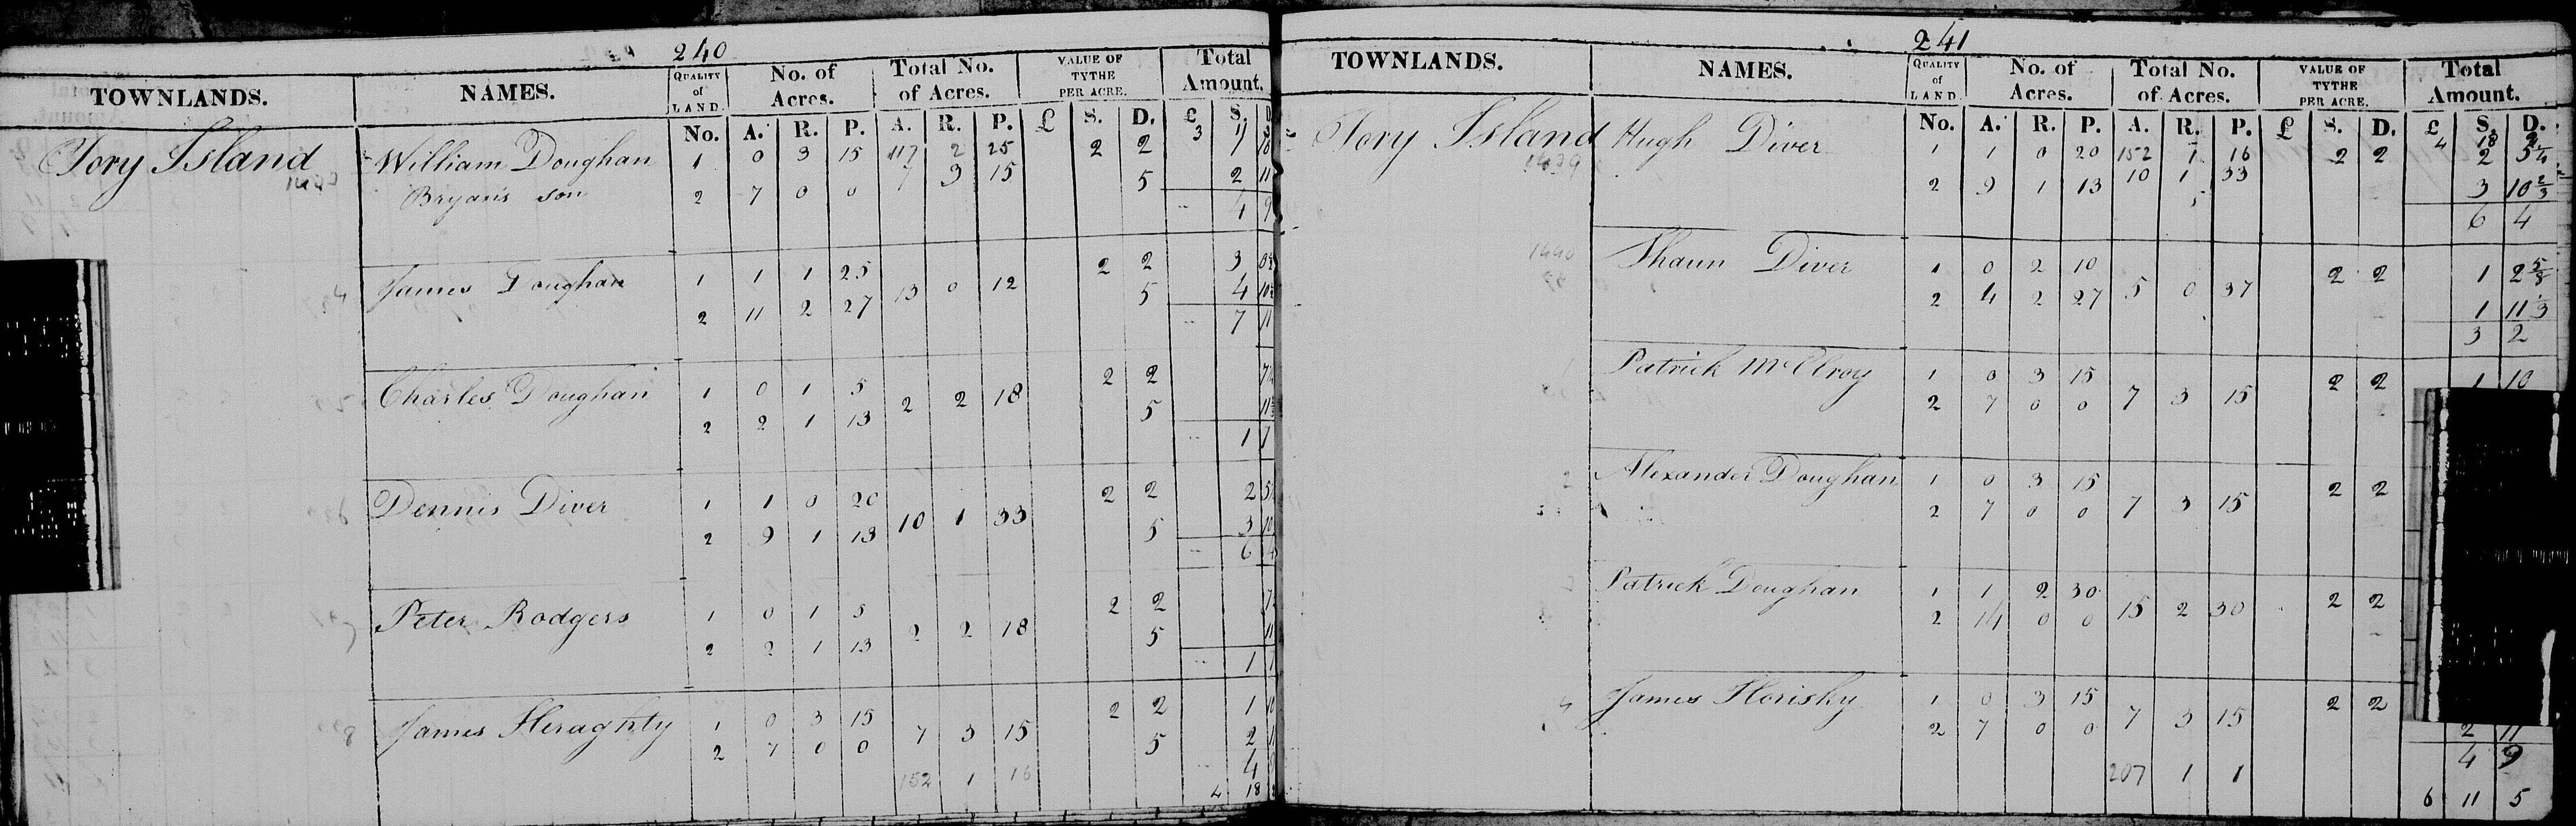 240
TOWNLANDS. NAMES. QUALITY of LAND. No. of Acres. Total No. of Acres. VALUE OF TYTHE PER ACRE. Total Amount.
No. A. R. P. A. R. P. £ S. D. £ S. D.
117 2 25 3 1
Tory Island William Doughan 1 0 3 15 7 3 15 2 2 1
Bryan's son 2 7 0 0 5 2 11
4 9
James Doughan 1 1 1 25 13 0 12 2 2 3
2 11 2 27 5 4
7 11
Charles Doughan 1 0 1 5 2 2 18 2 2
2 2 1 13 5
1
Dennis Diver 1 1 0 20 10 1 33 2 2 2
2 9 1 13 5 3
6
Peter Rodgers 1 0 1 5 2 2 18 2 2
2 2 1 13 5
1
James Heraghty 1 0 3 15 7 3 15 2 2 1
2 7 0 0 5 2
4
152 1 16 4 18
241
TOWNLANDS. NAMES. QUALITY of LAND No. of Acres. Total No. of Acres. VALUE OF TYTHE PER ACRE. Total Amount.
No. A. R. P. A. R. P. £ S. D. £ S. D.
152 1 16 4 18
Tory Island Hugh Diver 1 1 0 20 10 1 33 2 2 2 5¼
1439 2 9 1 13 3 10⅔
6 4
1440 Shaun Diver 1 0 2 10 5 0 37 2 2 1 2⅝
2 4 2 27 1 11⅓
3 2
Patrick McElroy 1 0 3 15 7 3 15 2 2 1 10
2 7 0 0
Alexander Doughan 1 0 3 15 7 3 15 2 2
2 7 0 0
Patrick Doughan 1 1 2 30 15 2 30 2 2
2 14 0 0
James Horisky 1 0 3 15 7 3 15 2 2
2 7 0 0 2 11
4 9
207 1 1 6 11 5